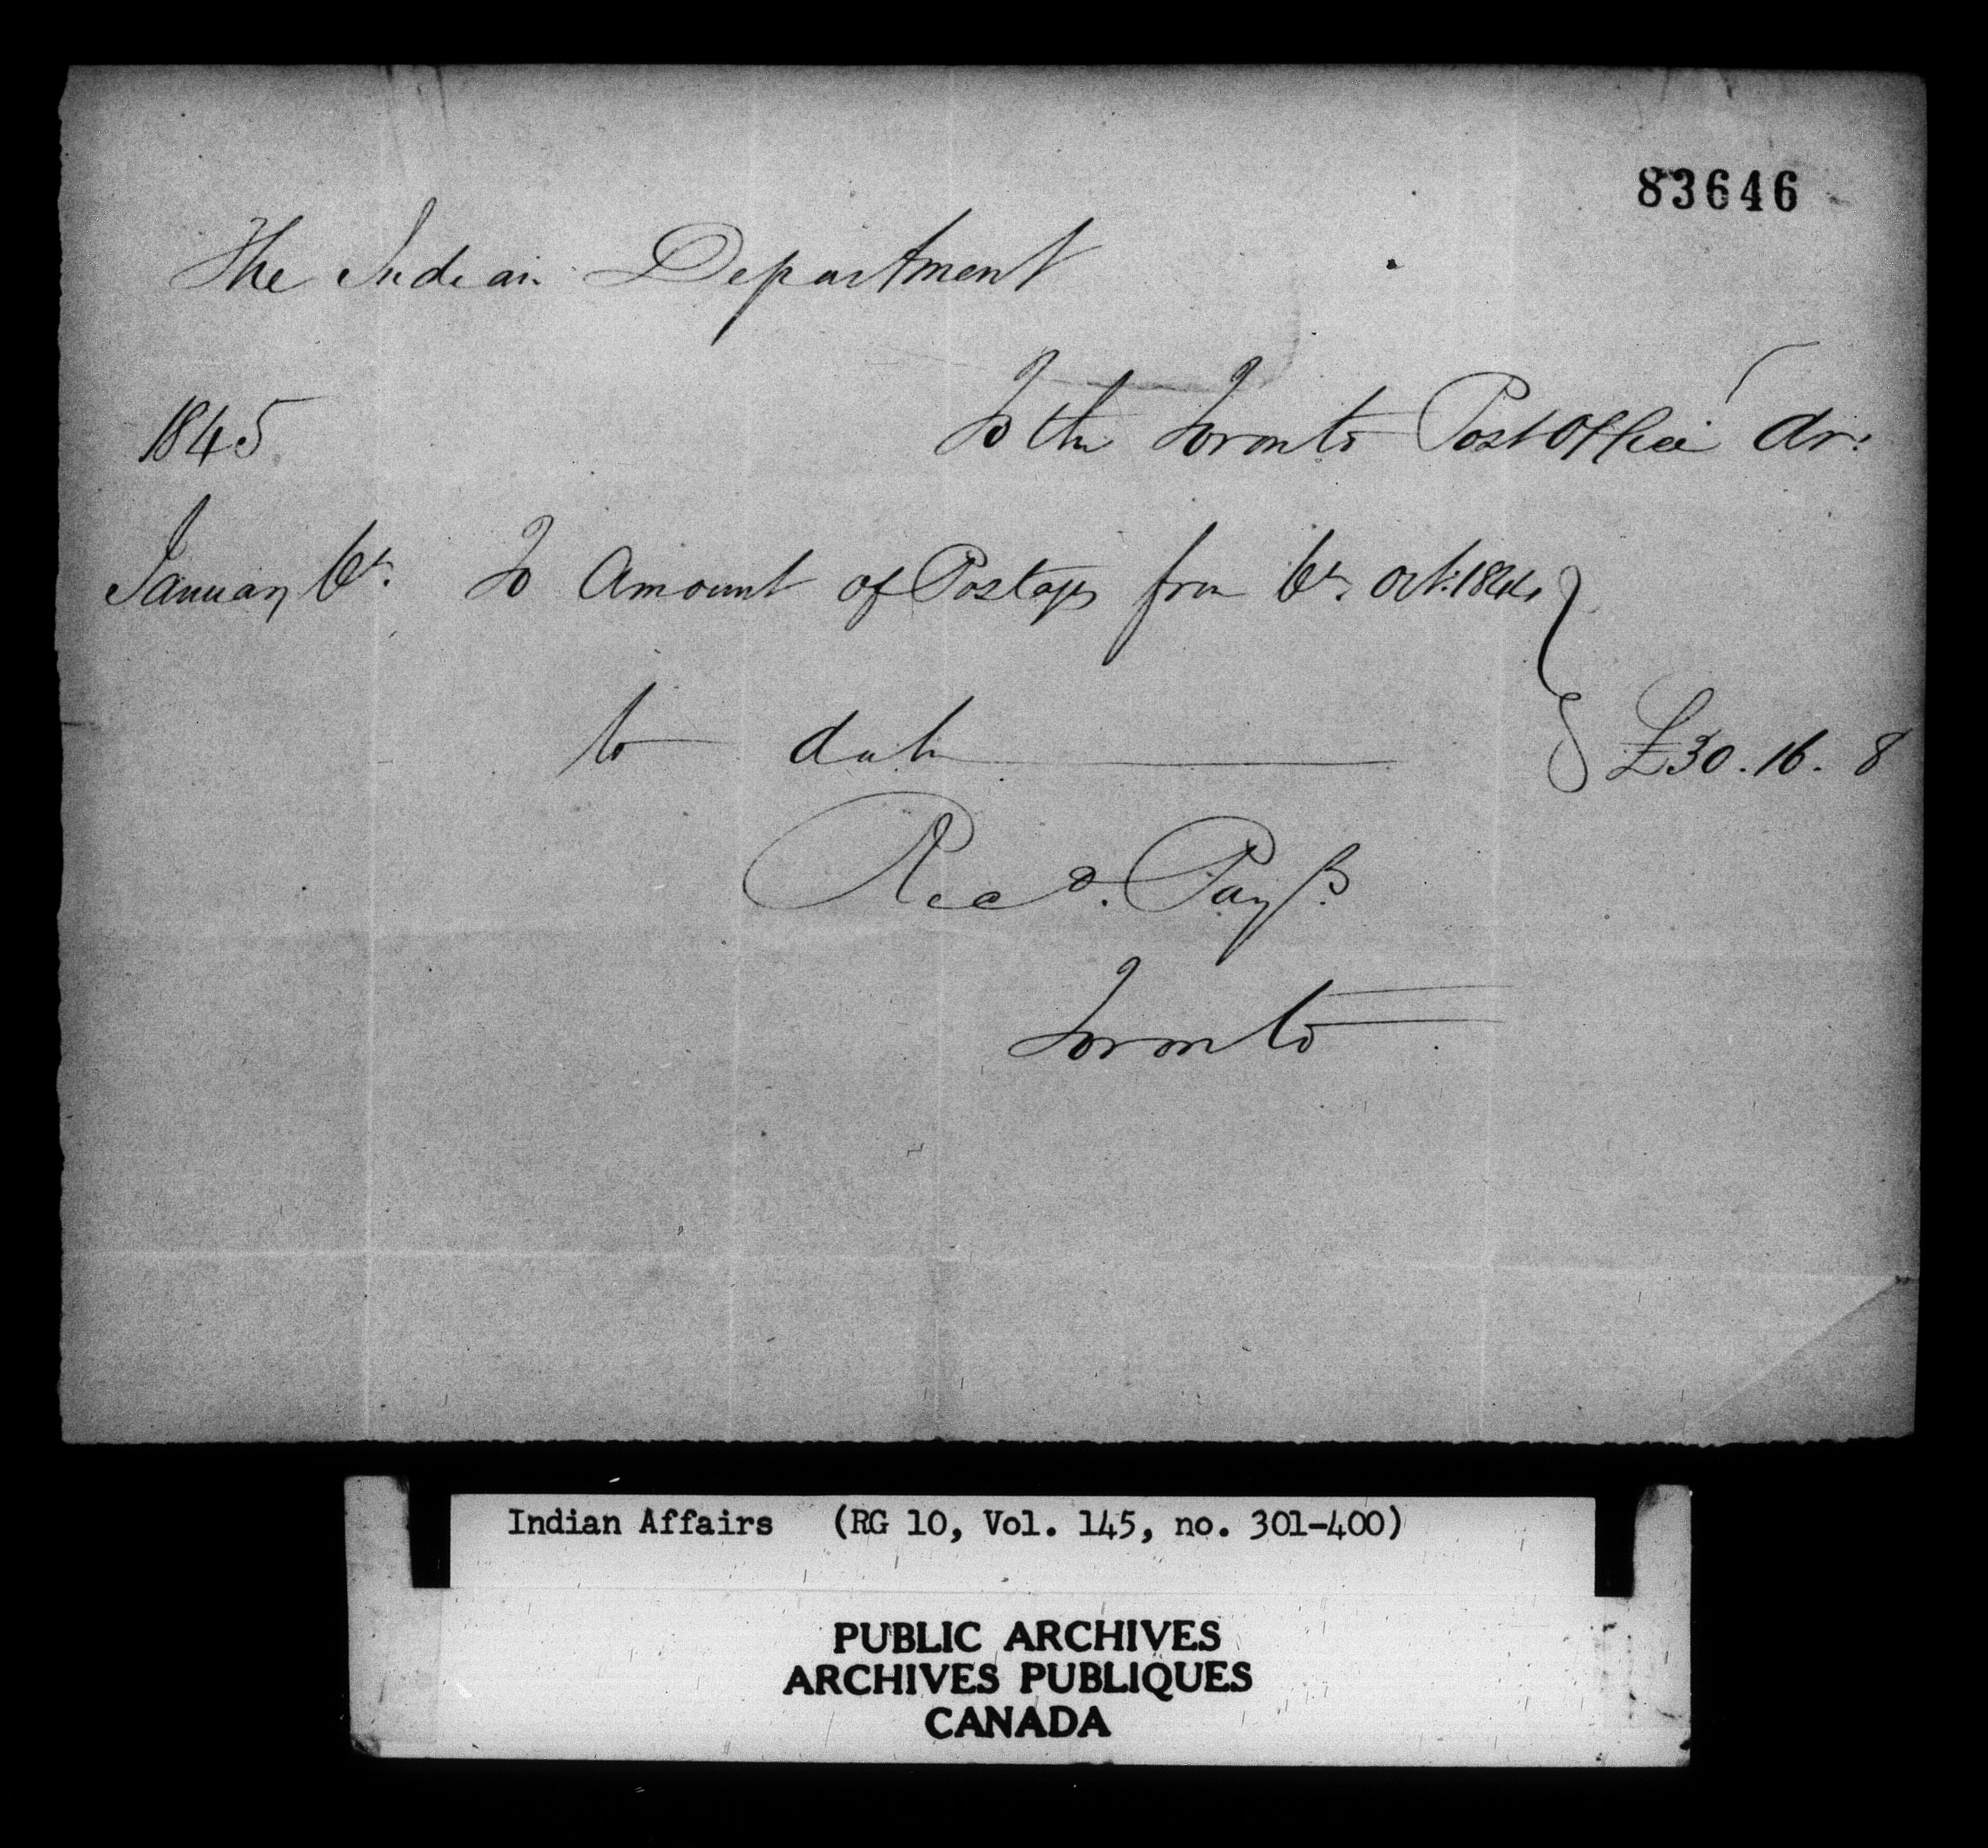 83646
The Indian Department
1845 To the Toronto Post Office Dr:
January 6th. To Amount of Postages from 6th. Oct: 1844
to date £30. 16. 8
Recd. Payt.
Toronto
Indian Affairs (RG 10, Vol. 145, no. 301-400)
PUBLIC ARCHIVES
ARCHIVES PUBLIQUES
CANADA